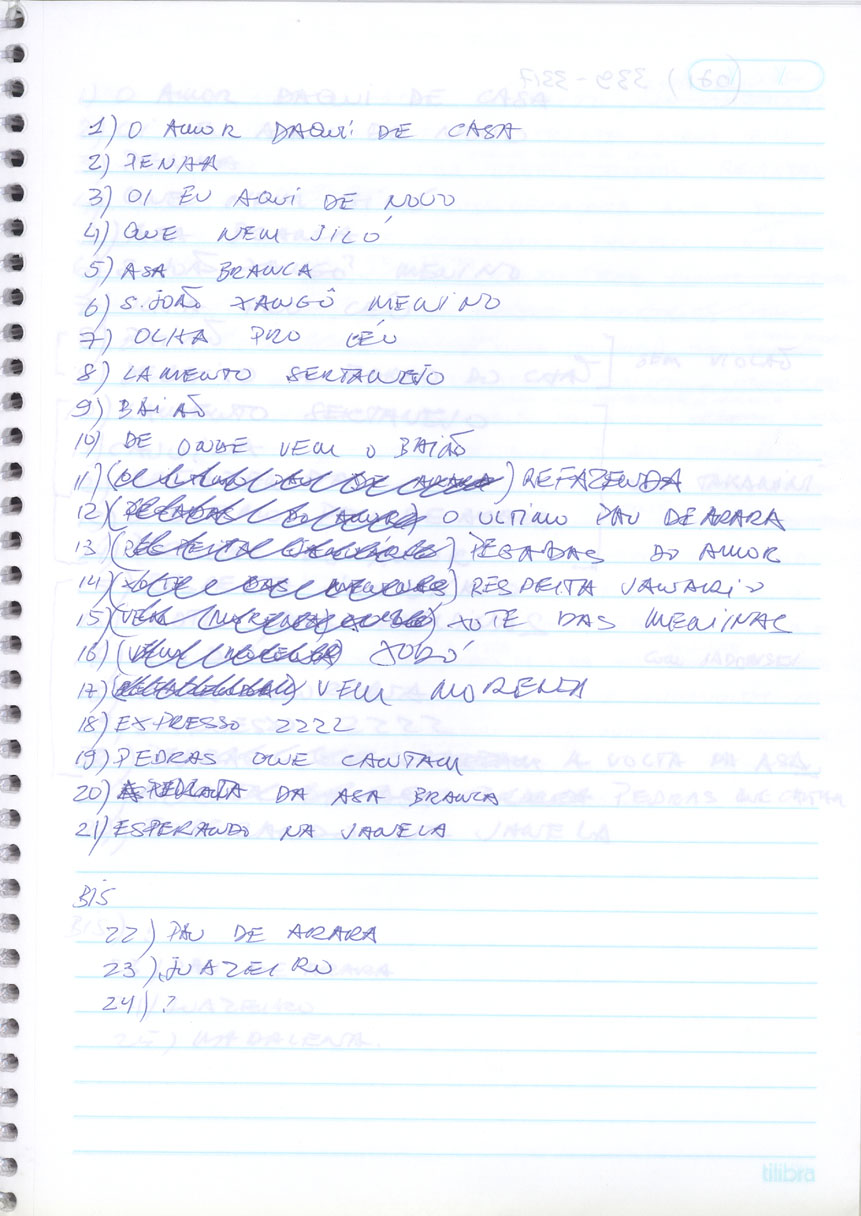 1) O AMOR DAQUI DE CASA
2) PENAR
3) OI EU AQUI DE NOVO
4) QUE NEM JILÓ
5) ASA BRANCA
6) S. JOÃO XANGÔ MENINO
7) OLHA PRO CÉU
8) LAMENTO SERTANEJO
9) BAIÃO
10) DE ONDE VEM O BAIÃO
11) ( ) REFAZENDA
12) ( ) O ULTIMO PAU DE ARARA
13) ( ) PEGADAS DO AMOR
14) ( ) RESPEITA JANUARIO
15) ( ) XOTE DAS MENINAS
16) ( )
17) ( ) VEM MORENA
18) EXPRESSO 2222
19) PEDRAS QUE CANTAM
20) DA ASA BRANCA
21) ESPERANDO NA JANELA
BIS
22) PAU DE ARARA
23) JUAZEIRO
24) ?
tilibra